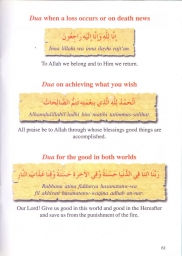 Dua when a loss occurs or on death news
إِنَّا لِلَّهِ وَإِنَّا إِلَيْهِ رَاجِعُونَ
Inna lillahi wa inna ilayhi raji'un.
To Allah we belong and to Him we return.
Dua on achieving what you wish
الْحَمْدُ لِلَّهِ الَّذِي بِنِعْمَتِهِ تَتِمُّ الصَّالِحَاتُ
All praise be to Allah through whose blessings good things are
accomplished.
Dua for the good in both worlds
رَبَّنَا آتِنَا فِي الدُّنْيَا حَسَنَةً وَفِي الْآخِرَةِ حَسَنَةً وَقِنَا عَذَابَ النَّارِ
Our Lord! Give us good in this world and good in the Hereafter
and save us from the punishment of the fire.